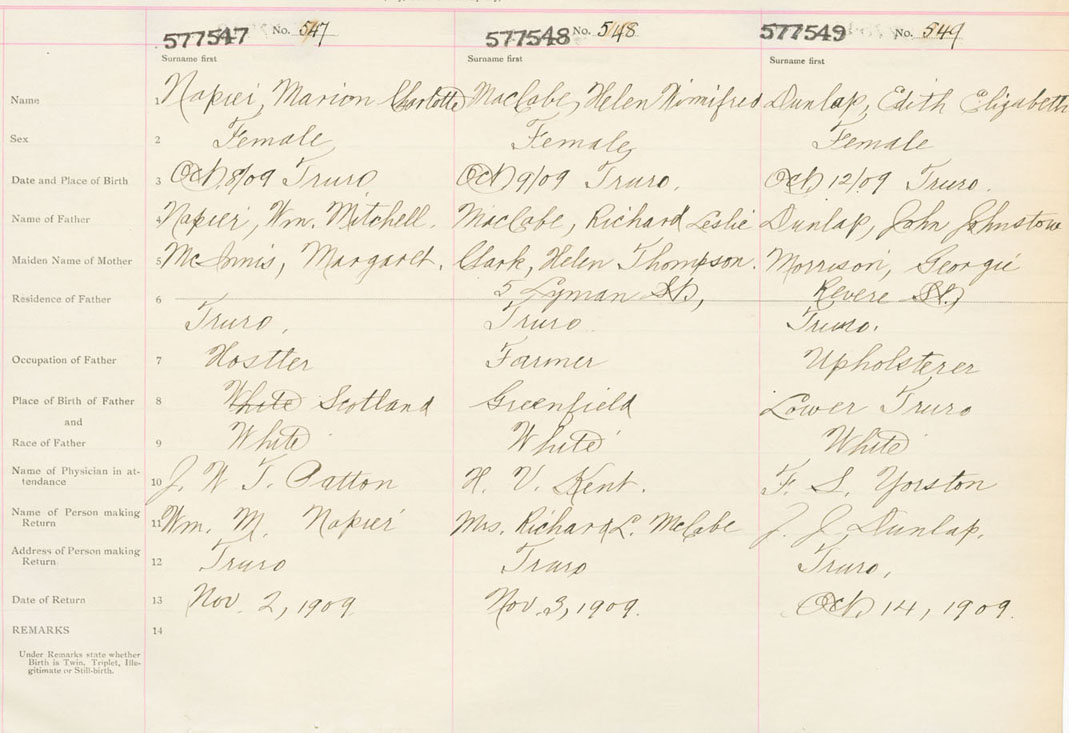 577547 No. 547 577548 No. 548 577549 No. 549
Surname first Surname first Surname first
Name 1 Napier, Marion Charlotte MacCabe, Helen Winnifred Dunlap, Edith Elizabeth
Sex 2 Female Female Female
Date and Place of Birth 3 Oct 8/09 Truro Oct 9/09 Truro. Oct 12/09 Truro.
Name of Father 4 Napier, Wm. Mitchell. MacCabe, Richard Leslie Dunlap, John Johnstone
Maiden Name of Mother 5 McInnis, Margaret. Clark, Helen Thompson. Morrison, Georgie
5 Lyman St, Revere St.,
Residence of Father 6
Truro, Truro Truro.
Occupation of Father 7 Hostler Farmer Upholsterer
Place of Birth of Father 8 White Scotland Greenfield Lower Truro
and
Race of Father 9 White White White
Name of Physician in at-
tendance 10 J. W. T. Patton H. V. Kent. F. S. Yorston
Name of Person making
Return 11 Wm. M. Napier Mrs. Richard L. McCabe J. J. Dunlap.
Address of Person making
Return 12 Truro Truro Truro,
Date of Return 13 Nov. 2, 1909 Nov. 3, 1909. Oct. 14, 1909.
REMARKS 14
Under Remarks state whether
Birth is Twin, Triplet, Ille-
gitimate or Still-birth.